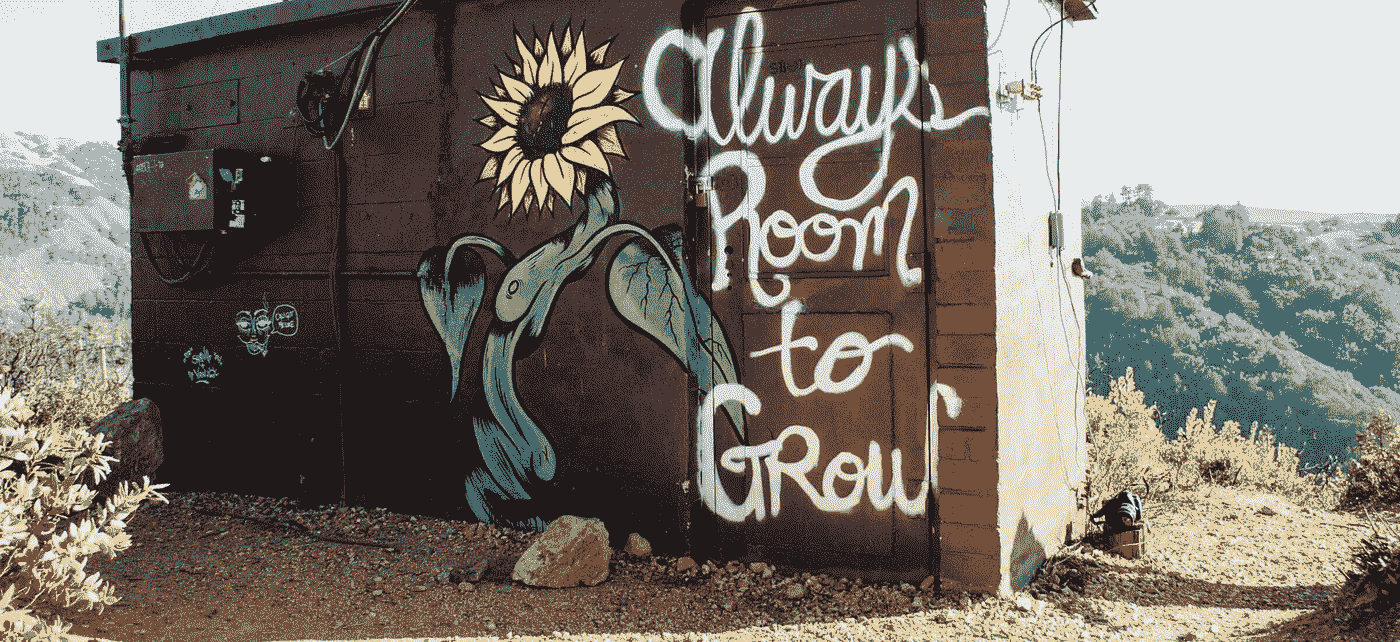 Always
Room
to
Grow